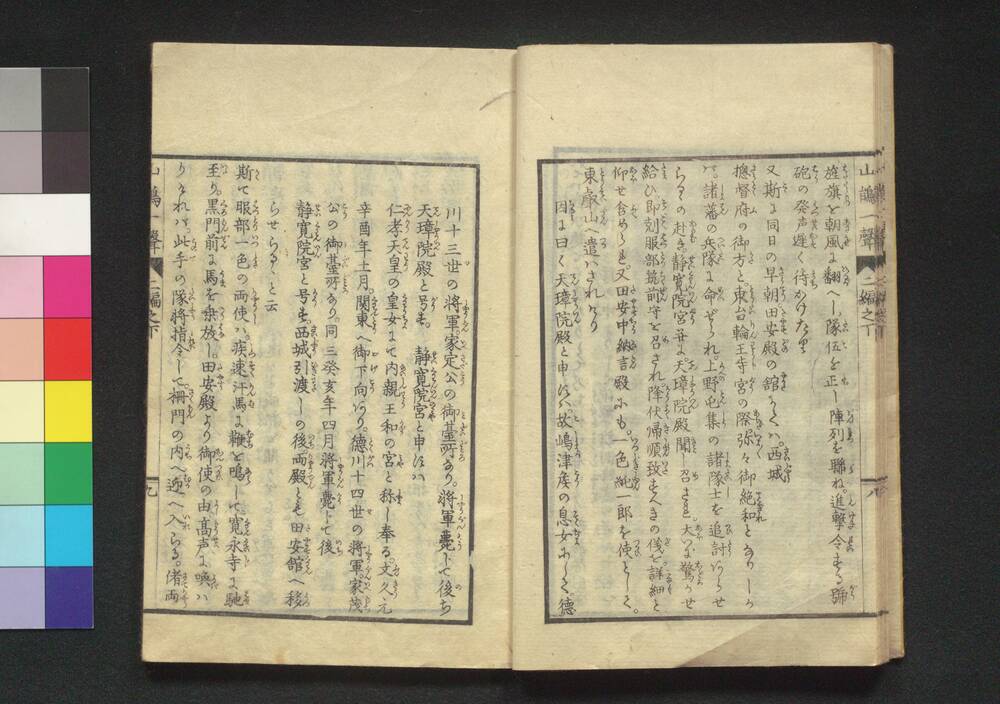 山鵑一聲 二編之下
旌旗を朝風に翻へし隊伍を正し陣列を聯ね。進撃令する號
砲の発声遅く待かけたり
又斯に同日の早朝田安殿の舘かくハ。西城
摠督府の御方と東台輪王寺宮の際弥々御絶和となりしか
バ。諸藩の兵隊に命ぜられ。上野屯集の諸隊士を追討あらせ
らるゝの赴き静寛院宮并に天璋院殿聞し召され。大に驚かせ
給ひ即刻服部筑前守を召され降伏帰順致すべきの儀。詳細と
仰せ含められ。又田安中納言殿にも。一色純一郎を使として。
東叡山へ遣はされけり
因に曰く天璋院殿と申すハ。故嶋津庶の息女にして。德
川十三世の将軍。家定公の御䑓所なり。将軍薨じて後ち
天璋院殿と号す。静寛院宮と申すハ
仁孝天皇の皇女にて内親王和の宮と称し奉る。文久元
辛酉年十一月。関東へ御下向あり。德川十四世の将軍。家茂
公の御䑓所なり。同三癸亥年四月将軍薨じて後
静寛院宮と号す。西城引渡しの後両殿とも田安舘へ移
らせらるゝと云
斯て服部一色の両使ハ。疾速汗馬に鞭を鳴して寛永寺に馳
至り。黒門前に馬を乗放し。田安殿より御使の由高声に喚ハ
りけれバ。此手の隊将指令して。柵門の内へ迎へ入らる。偖両
山鵑一聲 二編之下 九